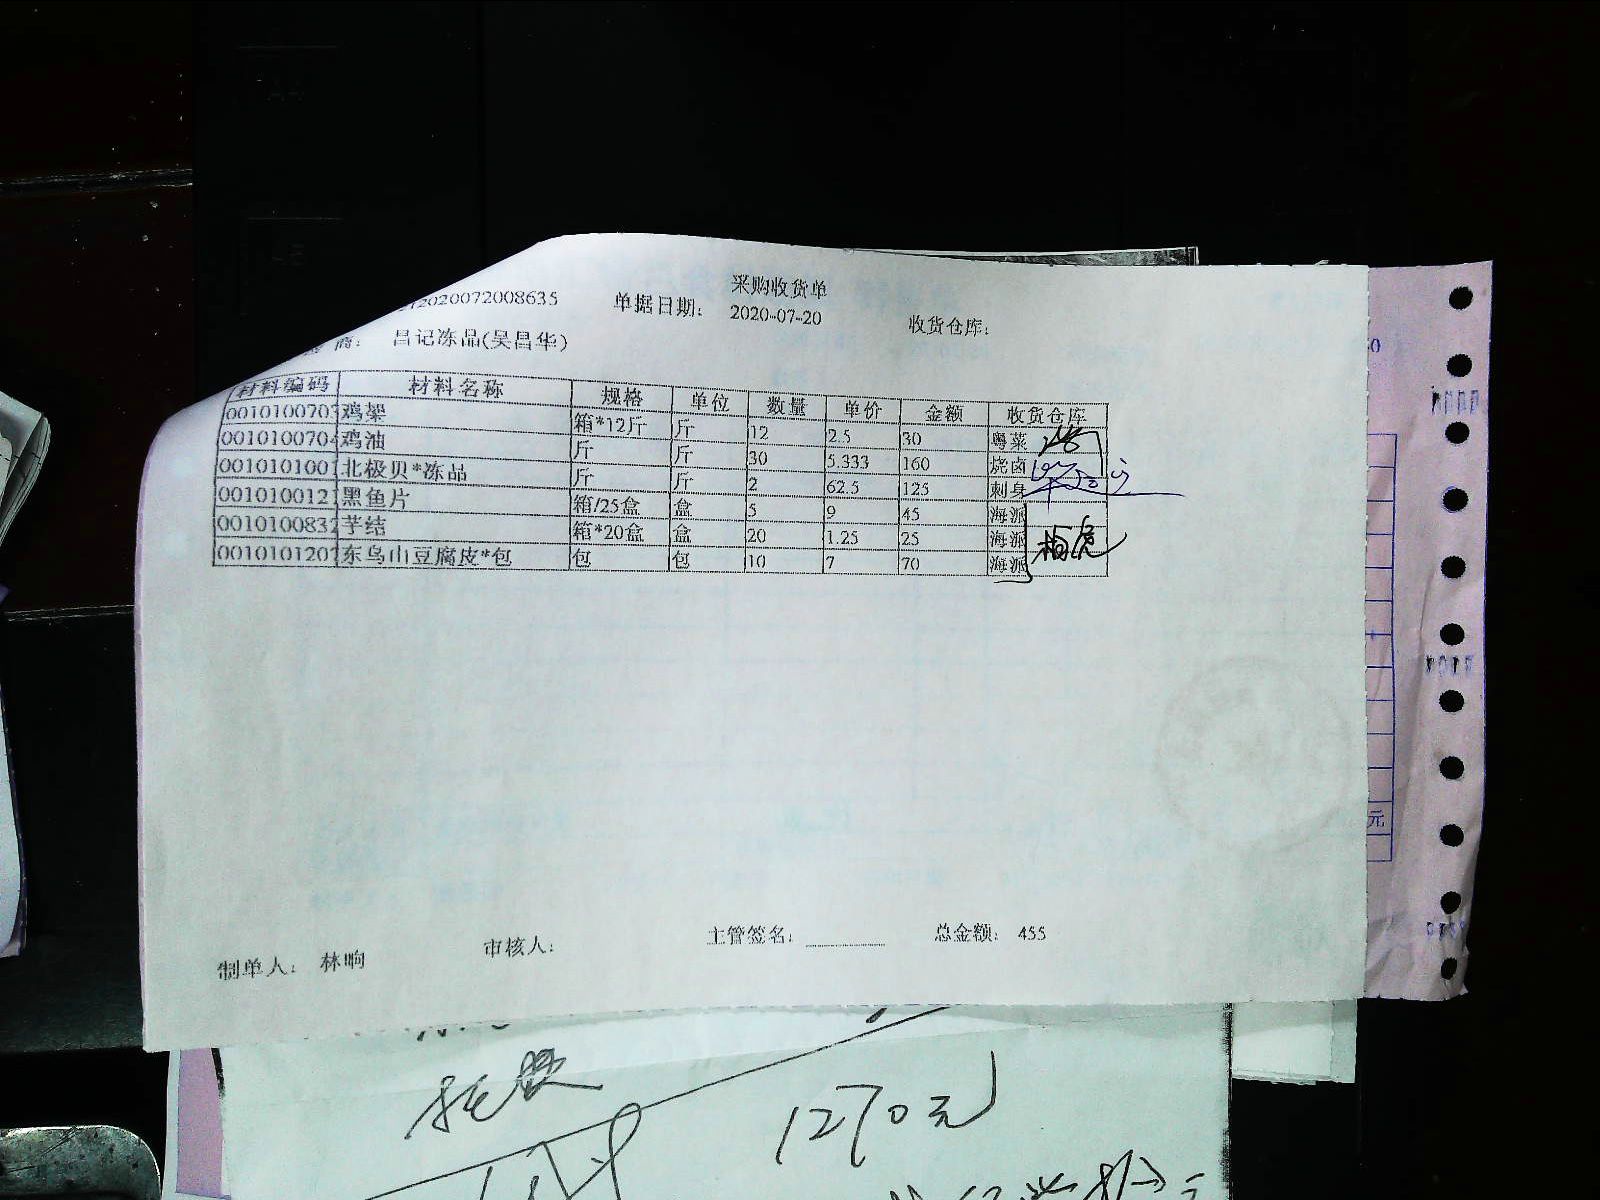 采购收货单
2020072008635 单据日期: 2020-07-20 收货仓库:
商: 昌记冻品(吴昌华)
材料编码 材料名称 规格 单位 数量 单价 金额 收货仓库
001010070 鸡架 箱*12斤 斤 12 2.5 30 粤菜
001010070 鸡油 斤 斤 30 5.333 160 烧卤
001010100 北极贝*冻品 斤 斤 2 62.5 125 刺身
001010012 黑鱼片 箱/25盒 盒 5 9 45 海派
001010083 芋结 箱*20盒 盒 20 1.25 25 海派
001010120 东乌山豆腐皮*包 包 包 10 7 70 海派
制单人: 林响 审核人: 主管签名: 总金额: 455
元
1270元